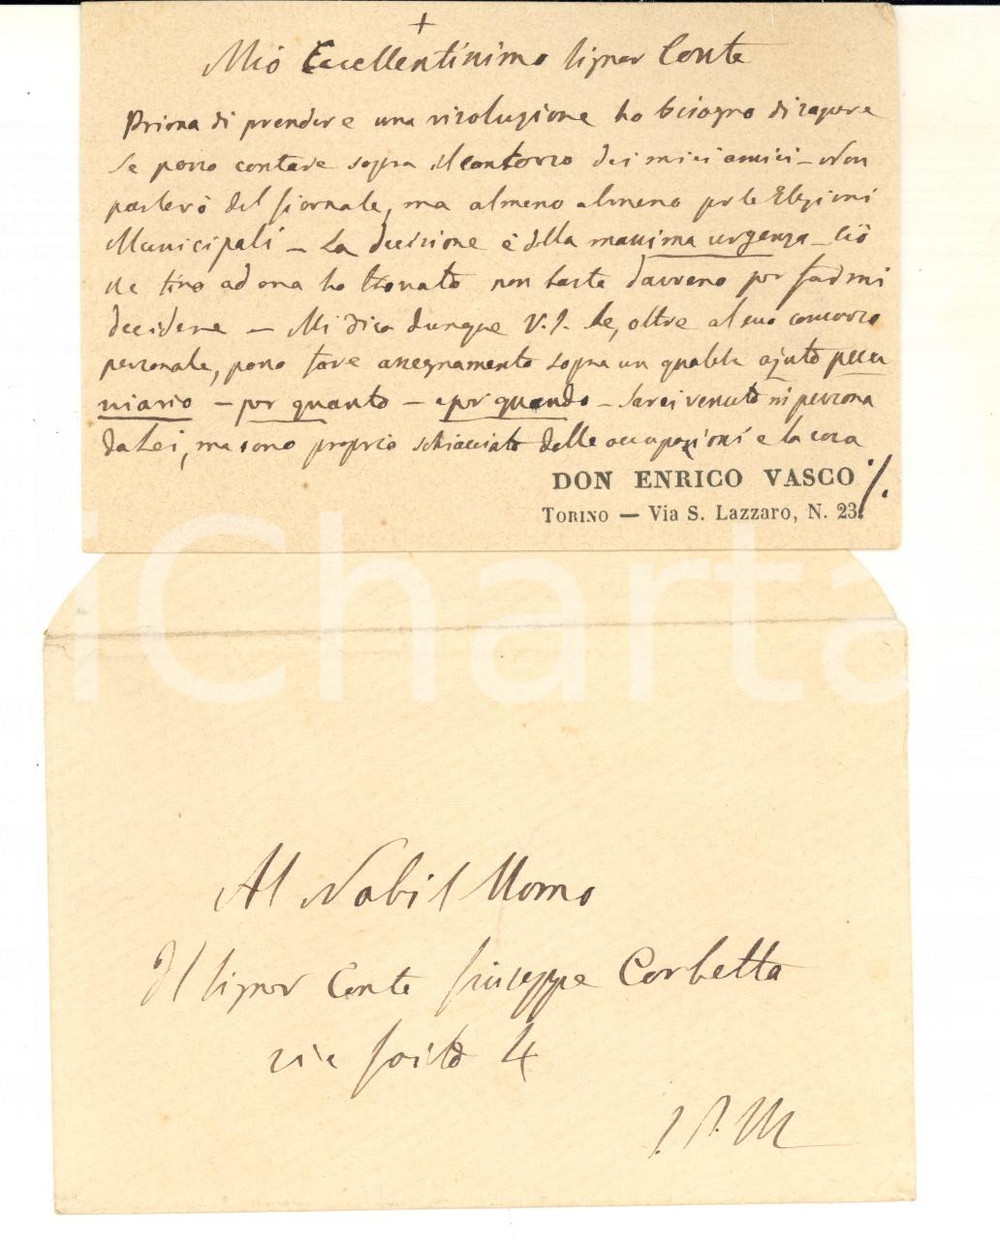 +
Mio Eccellentissimo Signor Conte
Prima di prendere una risoluzione ho bisogno di sapere
se posso contare sopra il concorso dei miei amici – Non
parlerò del Giornale, ma almeno almeno per le Elezioni
Municipali – La decisione è della massima urgenza – Ciò
che fino ad ora ho trovato non basta davvero per farmi
decidere – Mi dica dunque V.S. se, oltre al suo concorso
personale, posso fare assegnamento sopra un qualche ajuto pecu
niario – per quanto – e per quando – Sarei venuto in persona
da Lei, ma sono proprio schiacciato dalle occupazioni e la cosa
./.
DON ENRICO VASCO
TORINO — Via S. Lazzaro, N. 23.
iCharta
Al Nobil Uomo
Il Signor Conte Giuseppe Corbetta
via Goito 4
S.P.M